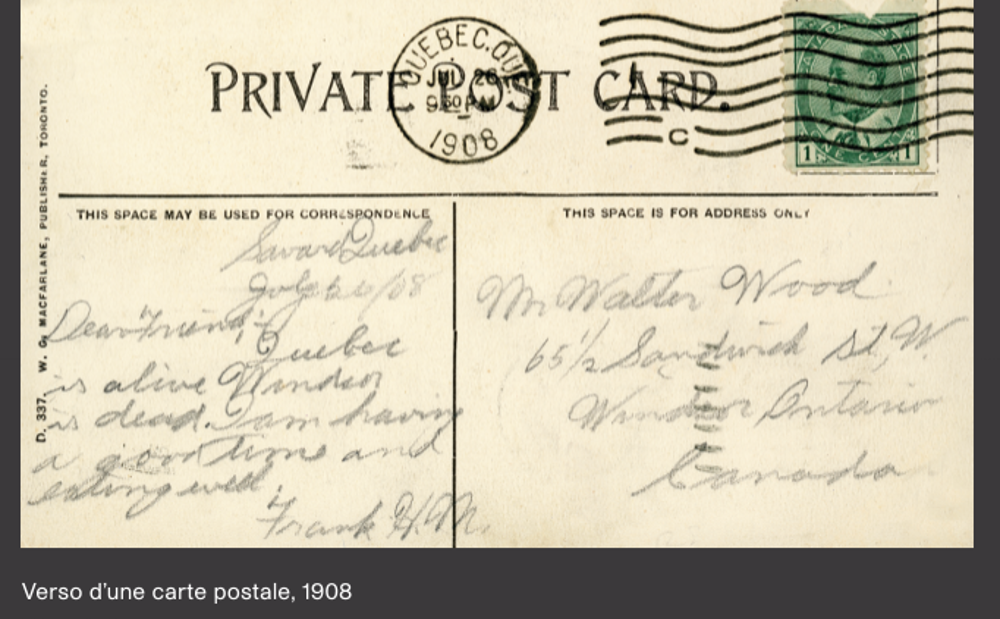 QUEBEC, QUE
PRIVATE POST CARD.
JUL 26
9 30 PM
1908
C
1 ONE CENT 1
D. 337. W. G. MACFARLANE, PUBLISHER, TORONTO.
THIS SPACE MAY BE USED FOR CORRESPONDENCE
Savard Quebec
July 26/08
Dear Friend,
Quebec
is alive Windsor
is dead. I am having
a good time and
eating well.
Frank H. M.
THIS SPACE IS FOR ADDRESS ONLY
Mr Walter Wood
65 1/2 Sandwich St, W.
Windsor Ontario
Canada
Verso d'une carte postale, 1908